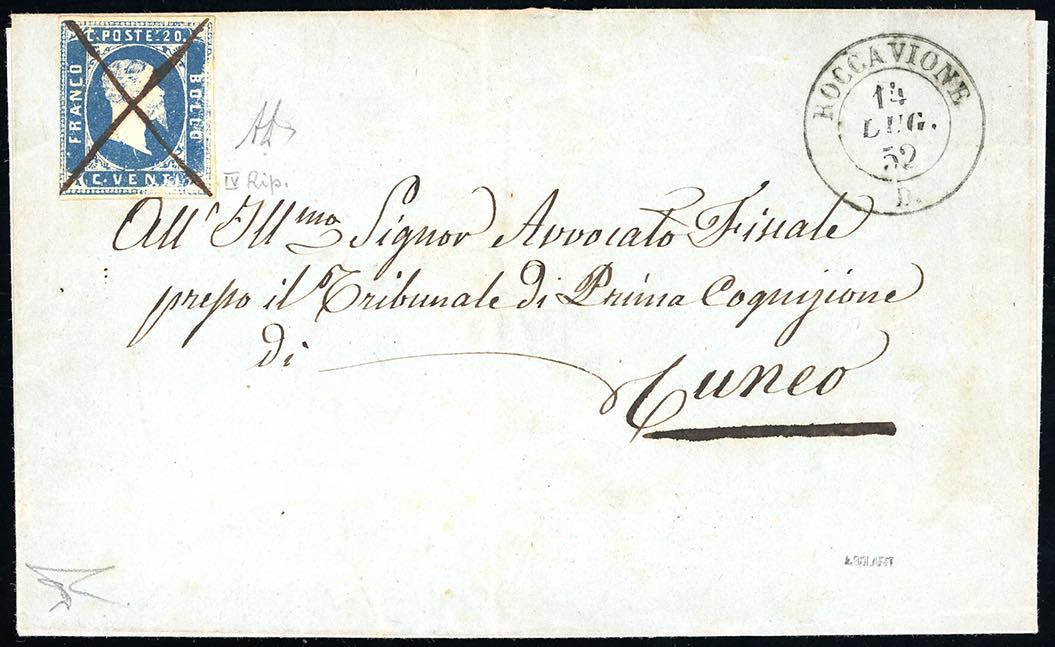 C. POSTE 20.
FRANCO
BOLLO
C. VENTI
IV Rip.
ROCCAVIONE
14
LUG.
52
D.
All' Ill.mo Signor Avvocato Fiscale
presso il Tribunale di Prima Cognizione
di
Cuneo